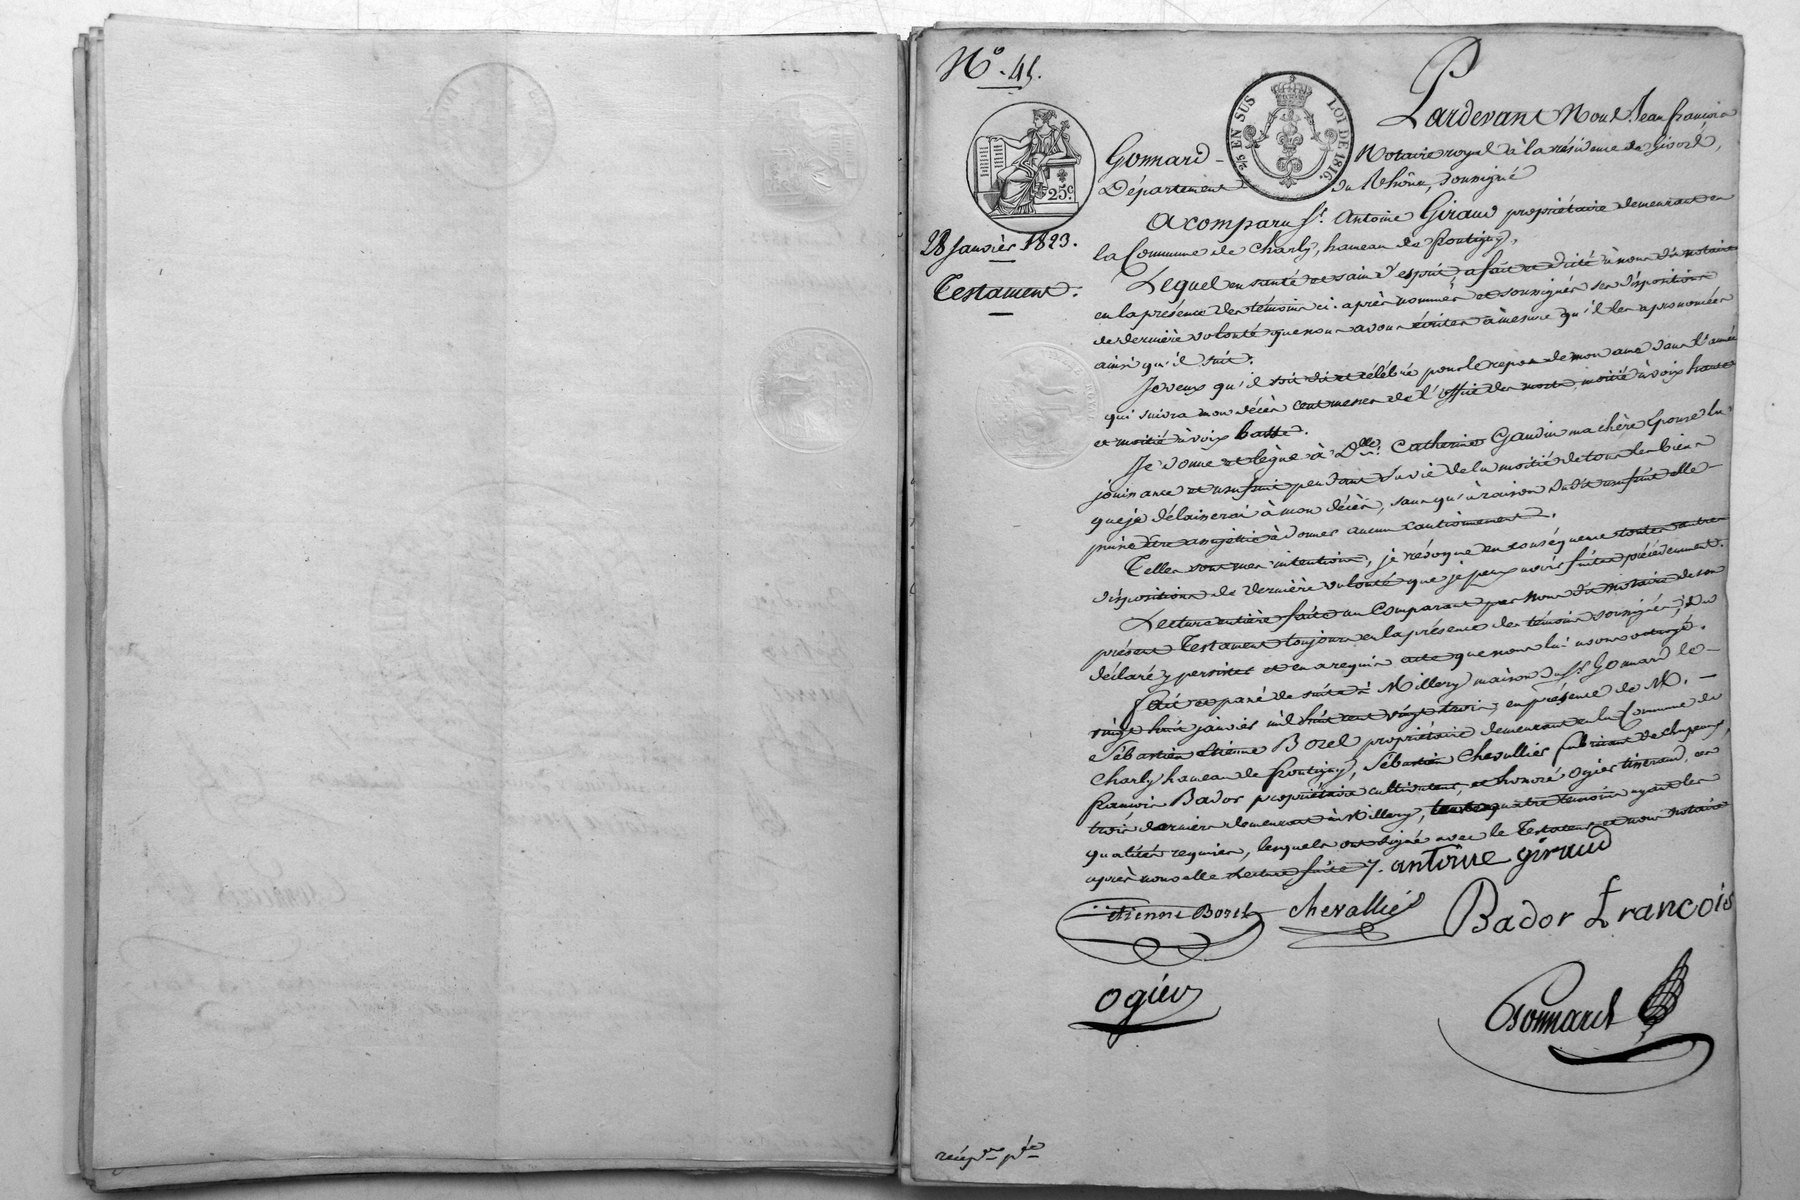 N.° 45.
Pardevant Nous Jean françois
25 EN SUS LOI DE 1816.
25c.
Gonnard Notaire royal à la résidence de Givors,
Département du Rhône, soussigné
28 Janvier 1823.
Testament.
A comparu Sr. Antoine Giraud propriétaire demeurant en
la Commune de Charly, hameau de frontigny,
Lequel en santé et sain d'esprit, a fait et dicté à nous dit notaire
en la présence des témoins ci-après nommés et soussignés ses dispositions
de dernière volonté que nous avons écrites à mesure qu'il les a prononcées
ainsi qu'il suit.
Je veux qu'il soit dit et célébré pour le repos de mon ame dans l'année
qui suivra mon décès cent messes de l'office des morts, moitié à voix hautes
et moitié à voix basse.
Je donne et lègue à Dlle. Catherine Gaudin ma chère Epouse la
jouissance et usufruit pendant sa vie de la moitié de tous les biens
que je délaisserai à mon décès, sans qu'à raison dudit usufruit elle
puisse être assujettie à donner aucun cautionnement.
Telles sont mes intentions, je révoque en conséquence toutes autres
dispositions de dernière volonté que je peux avoir faites précédemment.
Lecture entière faite au Comparant par nous dit notaire de son
présent Testament toujours en la présence des témoins soussignés, il a
déclaré y persister et en a requis acte que nous lui avons octroyé.
fait et passé de suite à Millery maison du Sr. Gonnard le
vingt huit janvier mil huit cent vingt trois, en présence de M.
Sébastien Etienne Borel propriétaire demeurant en la Commune de
Charly hameau de frontigny, Sébastien Chevallier fabricant de chapeaux,
françois Bador propriétaire cultivateur, et honoré Ogier tisserand, ces
trois derniers demeurant à Millery, tous quatre témoins ayant les
qualités requises, lesquels ont signé avec le Testateur et nous notaire
après nouvelle lecture faite. antoine giraud
Etienne Borel chevallier Bador francois
ogier
Gonnard